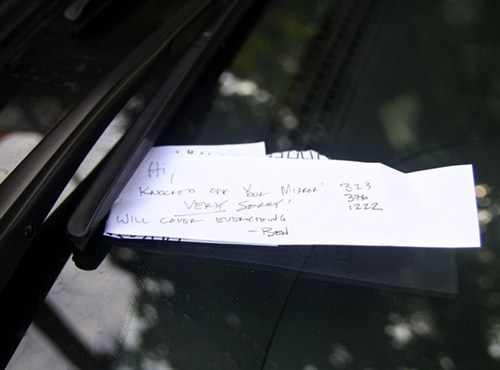 Hi,
KNOCKED OFF YOUR MIRROR!
VERY SORRY!
WILL COVER EVERYTHING
- BEN
323
376
1222